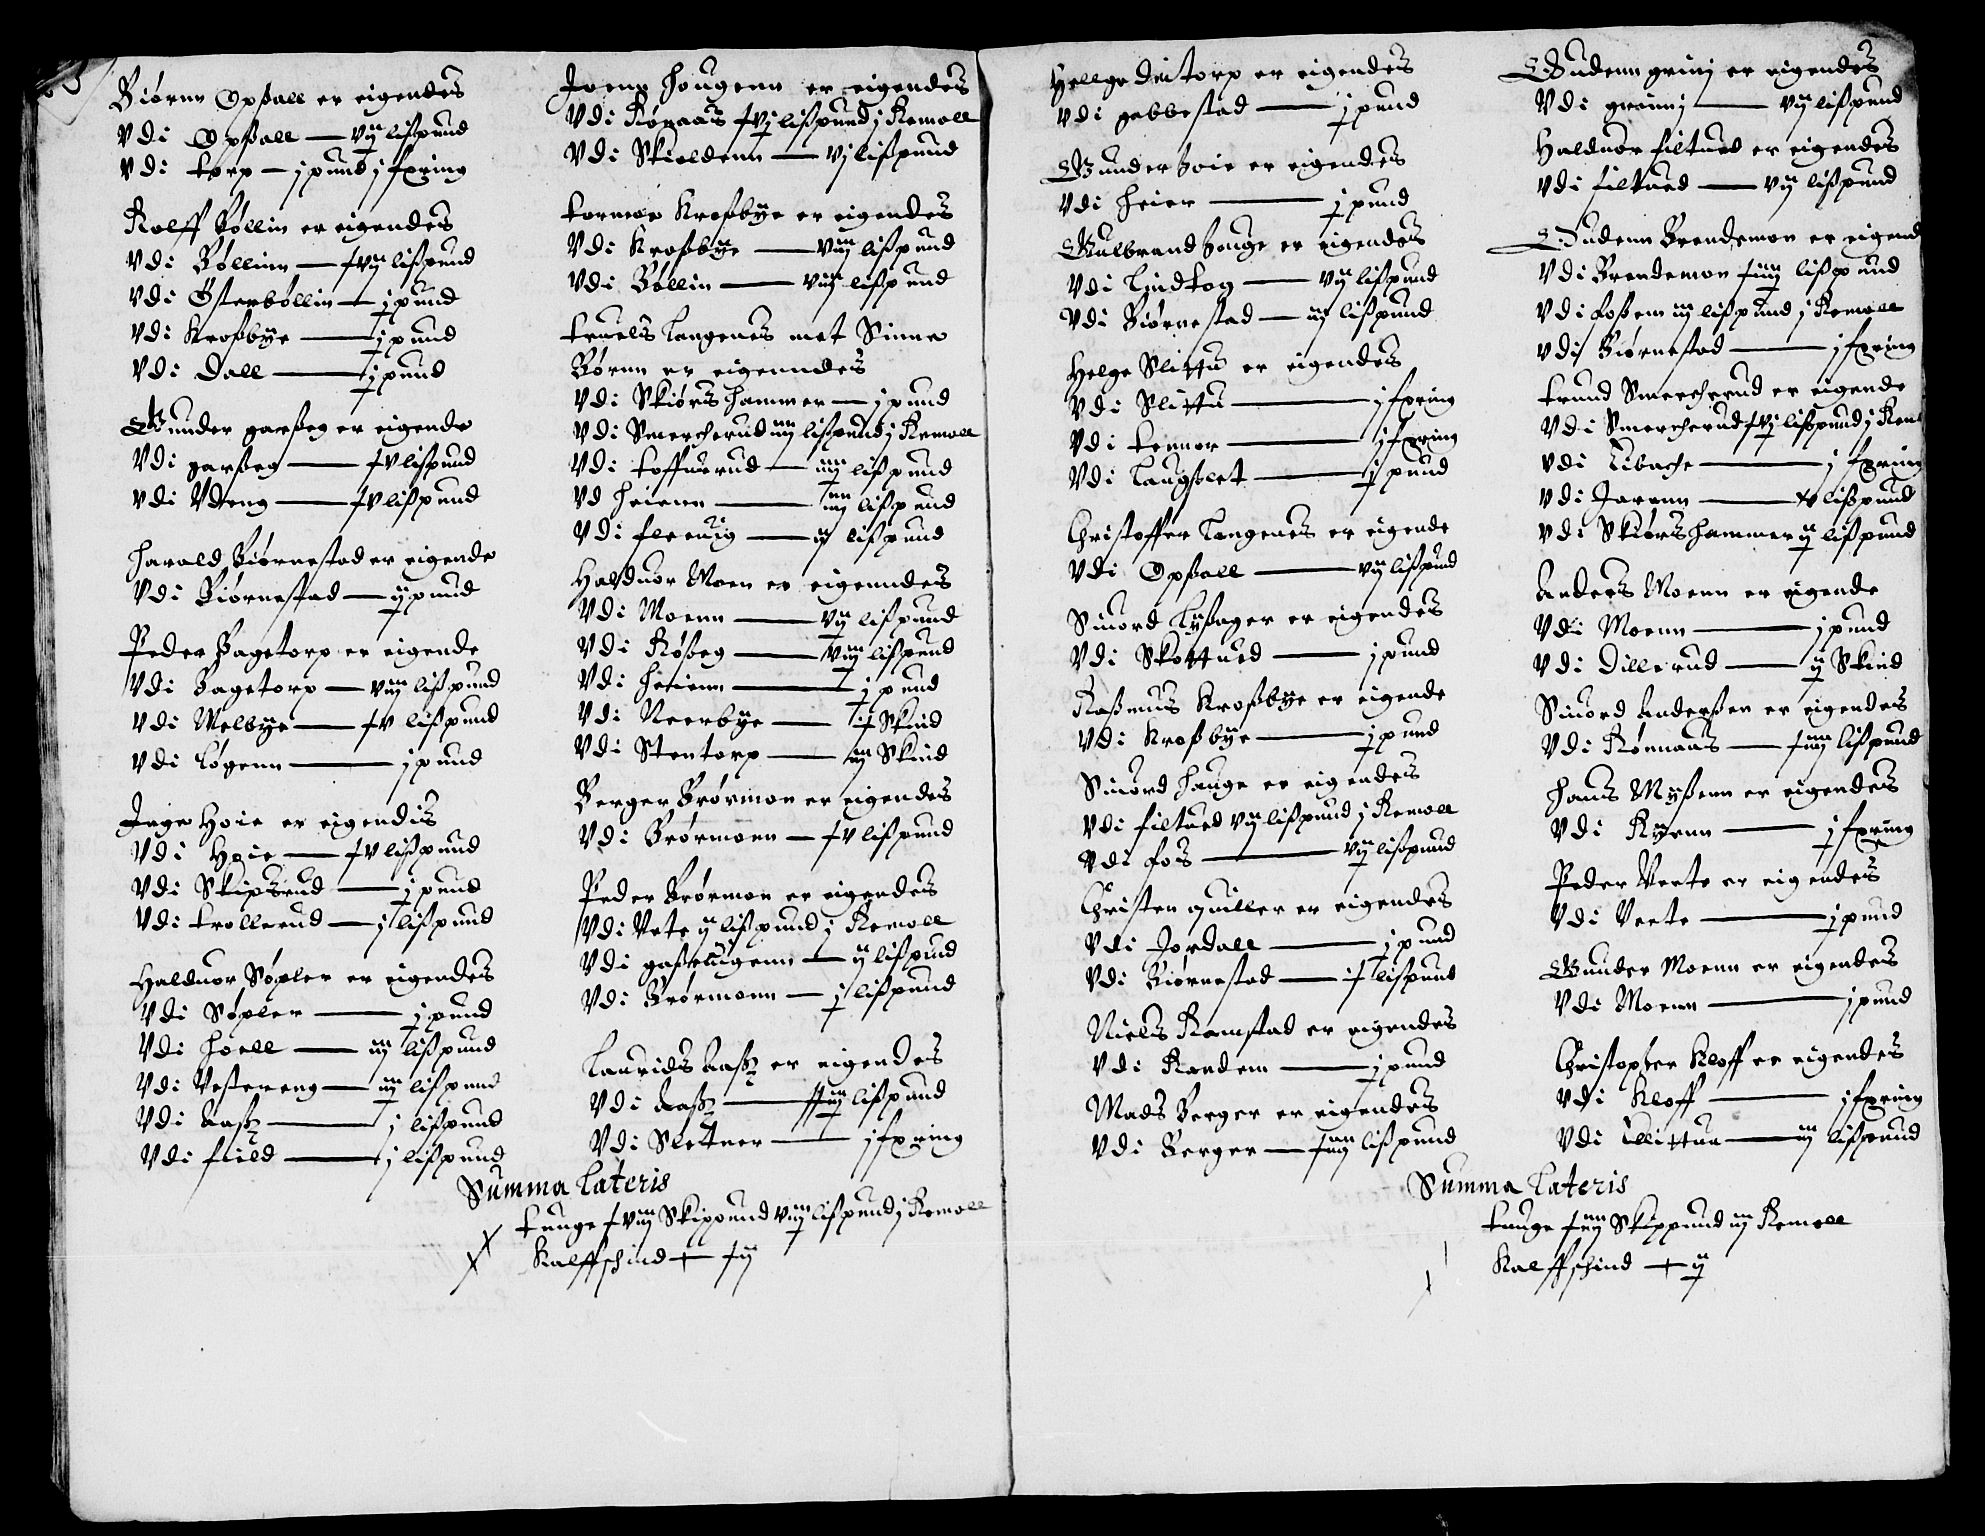 Biørnn Opßall er eigendes
Vdi Opßall — vij lißpund
Vdi torp — j pund j fxring
Rolff Bøllin er eigendes
Vdi Bøllinn — xvij lißpund
Vdi Østerbøllin — j pund
Vdi Kroßbye — j pund
Vdi Dall — j pund
Gunder garßeg er eigende
Vdi garßeg — xv lißpund
Vdi Vdeng — xv lißpund
Harald Biørnestad er eigende
Vdi Biørnestad — ij pund
Peder Bagetorp er eigende
Vdi Bagetorp — viij lißpund
Vdi Melbye — xv lißpund
Vdi Løgenn — j pund
Inge Hoie er eigendis
Vdi Hoie — xv lißpund
Vdi Skipsrud — j pund
Vdi trollerud — j lißpund
Halduor Søpler er eigendes
Vdi Søpler — j pund
Vdi Hoell — iij lißpund
Vdi Vestereng — iij lißpund
Vdi Aaß — j lißpund
Vdi field — j lißpund
Joenn Hougenn er eigendes
Vdi Rønaas xvj lißpund j Remoll
Vdi Skieldenn — vj lißpund
tormoe Kroßbye er eigendes
Vdi Kroßbye — viij lißpund
Vdi Bøllin — viij lißpund
truels Langenes met Sinne
Børnn er eigenndes
Vdi Skiørshammer — j pund
Vdi Smercherud iiij lißpund j Remoll
Vdi toffuerud — iiij lißpund
Vd Heienn — xiiij lißpund
Vdi fleeuig — ij lißpund
Halduor Moen er eigenndes
Vdi Moenn — vij lißpund
Vdi Røßeg — viij lißpund
Vdi Heienn — j pund
Vdi Neerbye — ij Skind
Vdi Stentorp — iij Skind
Berger Brørmon er eigendes
Vdi Brørmoen — xv lißpund
Peder Brørmon er eigendes
Vdi Vete ij lißpund j Remoll
Vdi gaßeuigenn — ij lißpund
Vdi Brørmonn — j lißpund
Laurids Aaß er eigendes
Vdi Aaß — lißpund
Vdi Sletner — j fxring
Summa Lateris
tunge xviij Skippund viij lißpund j Remoll
Kalffschind — xij
Hellge Deitorp er eigendes
Vdi gabbestad — j pund
Gunder Hoie er eigendes
Vdi Heier — j pund
Gulbrand Houge er eigendes
Vdi Lindtog — vij lißpund
Vdi Biørnestad — iij lißpund
Helge Slittu er eigendes
Vdi Slittu — j fxring
Vdi tennor — j fxring
Vdi Laugslet — j pund
Christoffer Langenes er eigende
Vdi Opßall — vij lißpund
Siuord Lyßager er eigendes
Vdi Skottued — j pund
Raßmus Kroßbye er eigende
Vdi Kroßbye — j pund
Siuord Hauge er eigendes
Vdi filtued vij lißpund j Remoll
Vdi fos — vij lißpund
Christen quiller er eigendes
Vdi Jordall — j pund
Vdi Biørnestad — lißpund
Niels Ramstad er eigendes
Vdi Randem — j pund
Mads Berger er eigendes
Vdi Berger — xiiij lißpund
Gudenn grini er eigendes
Vdi grinni — vij lißpund
Halduor filtued er eigendes
Vdi filtued — vij lißpund
Gudenn Brendemon er eigend
Vdi Brendemon xiiij lißpund
Vdi foßem iij lißpund j Remoll
Vdi Biørnestad — j fxring
trund Smercherud er eigende
Vdi Smercherud xvj lißpund j Rem
Vdi Libache — j fxring
Vdi Jarenn — xv lißpund
Vdi Skiørshammer ij lißpund
Anders Moenn er eigende
Vdi Moenn — j pund
Vdi Dillerud — ij Skind
Siuord Anderßen er eigendes
Vdi Rønnaas — xiiij lißpund
Hans Myßenn er eigendes
Vdi Ryenn — j fxring
Peder Veete er eigendes
Vdi Veete — j pund
Gunder Moenn er eigendes
Vdi Moenn — j pund
Christopher Kloff er eigendes
Vdi Kloff — j fxring
Vdi — iij lißpund
Summa Lateris
tunge xiiij Skippund iij Remoll
Kalffschind — ij